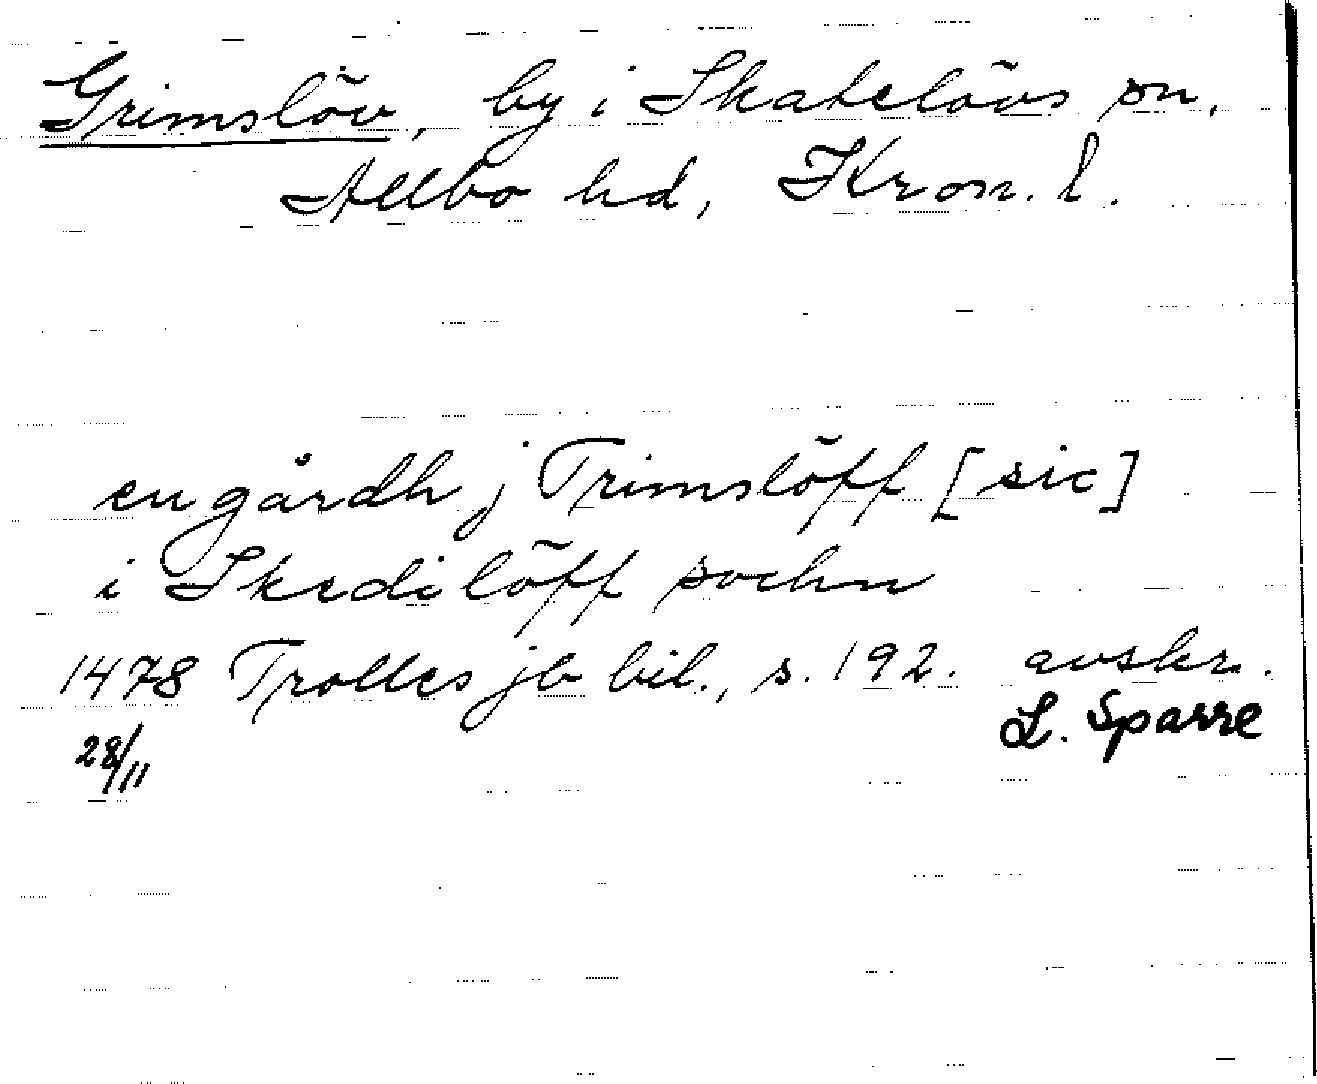 Grimslöv, by i Skatelövs sn,
Allbo hd, Kron. l.
en gårdh j Trimslöff [sic]
i Skedilöff sochn
1478 Trolles jb bil., s. 192. avskr.
L. Sparre
28/11